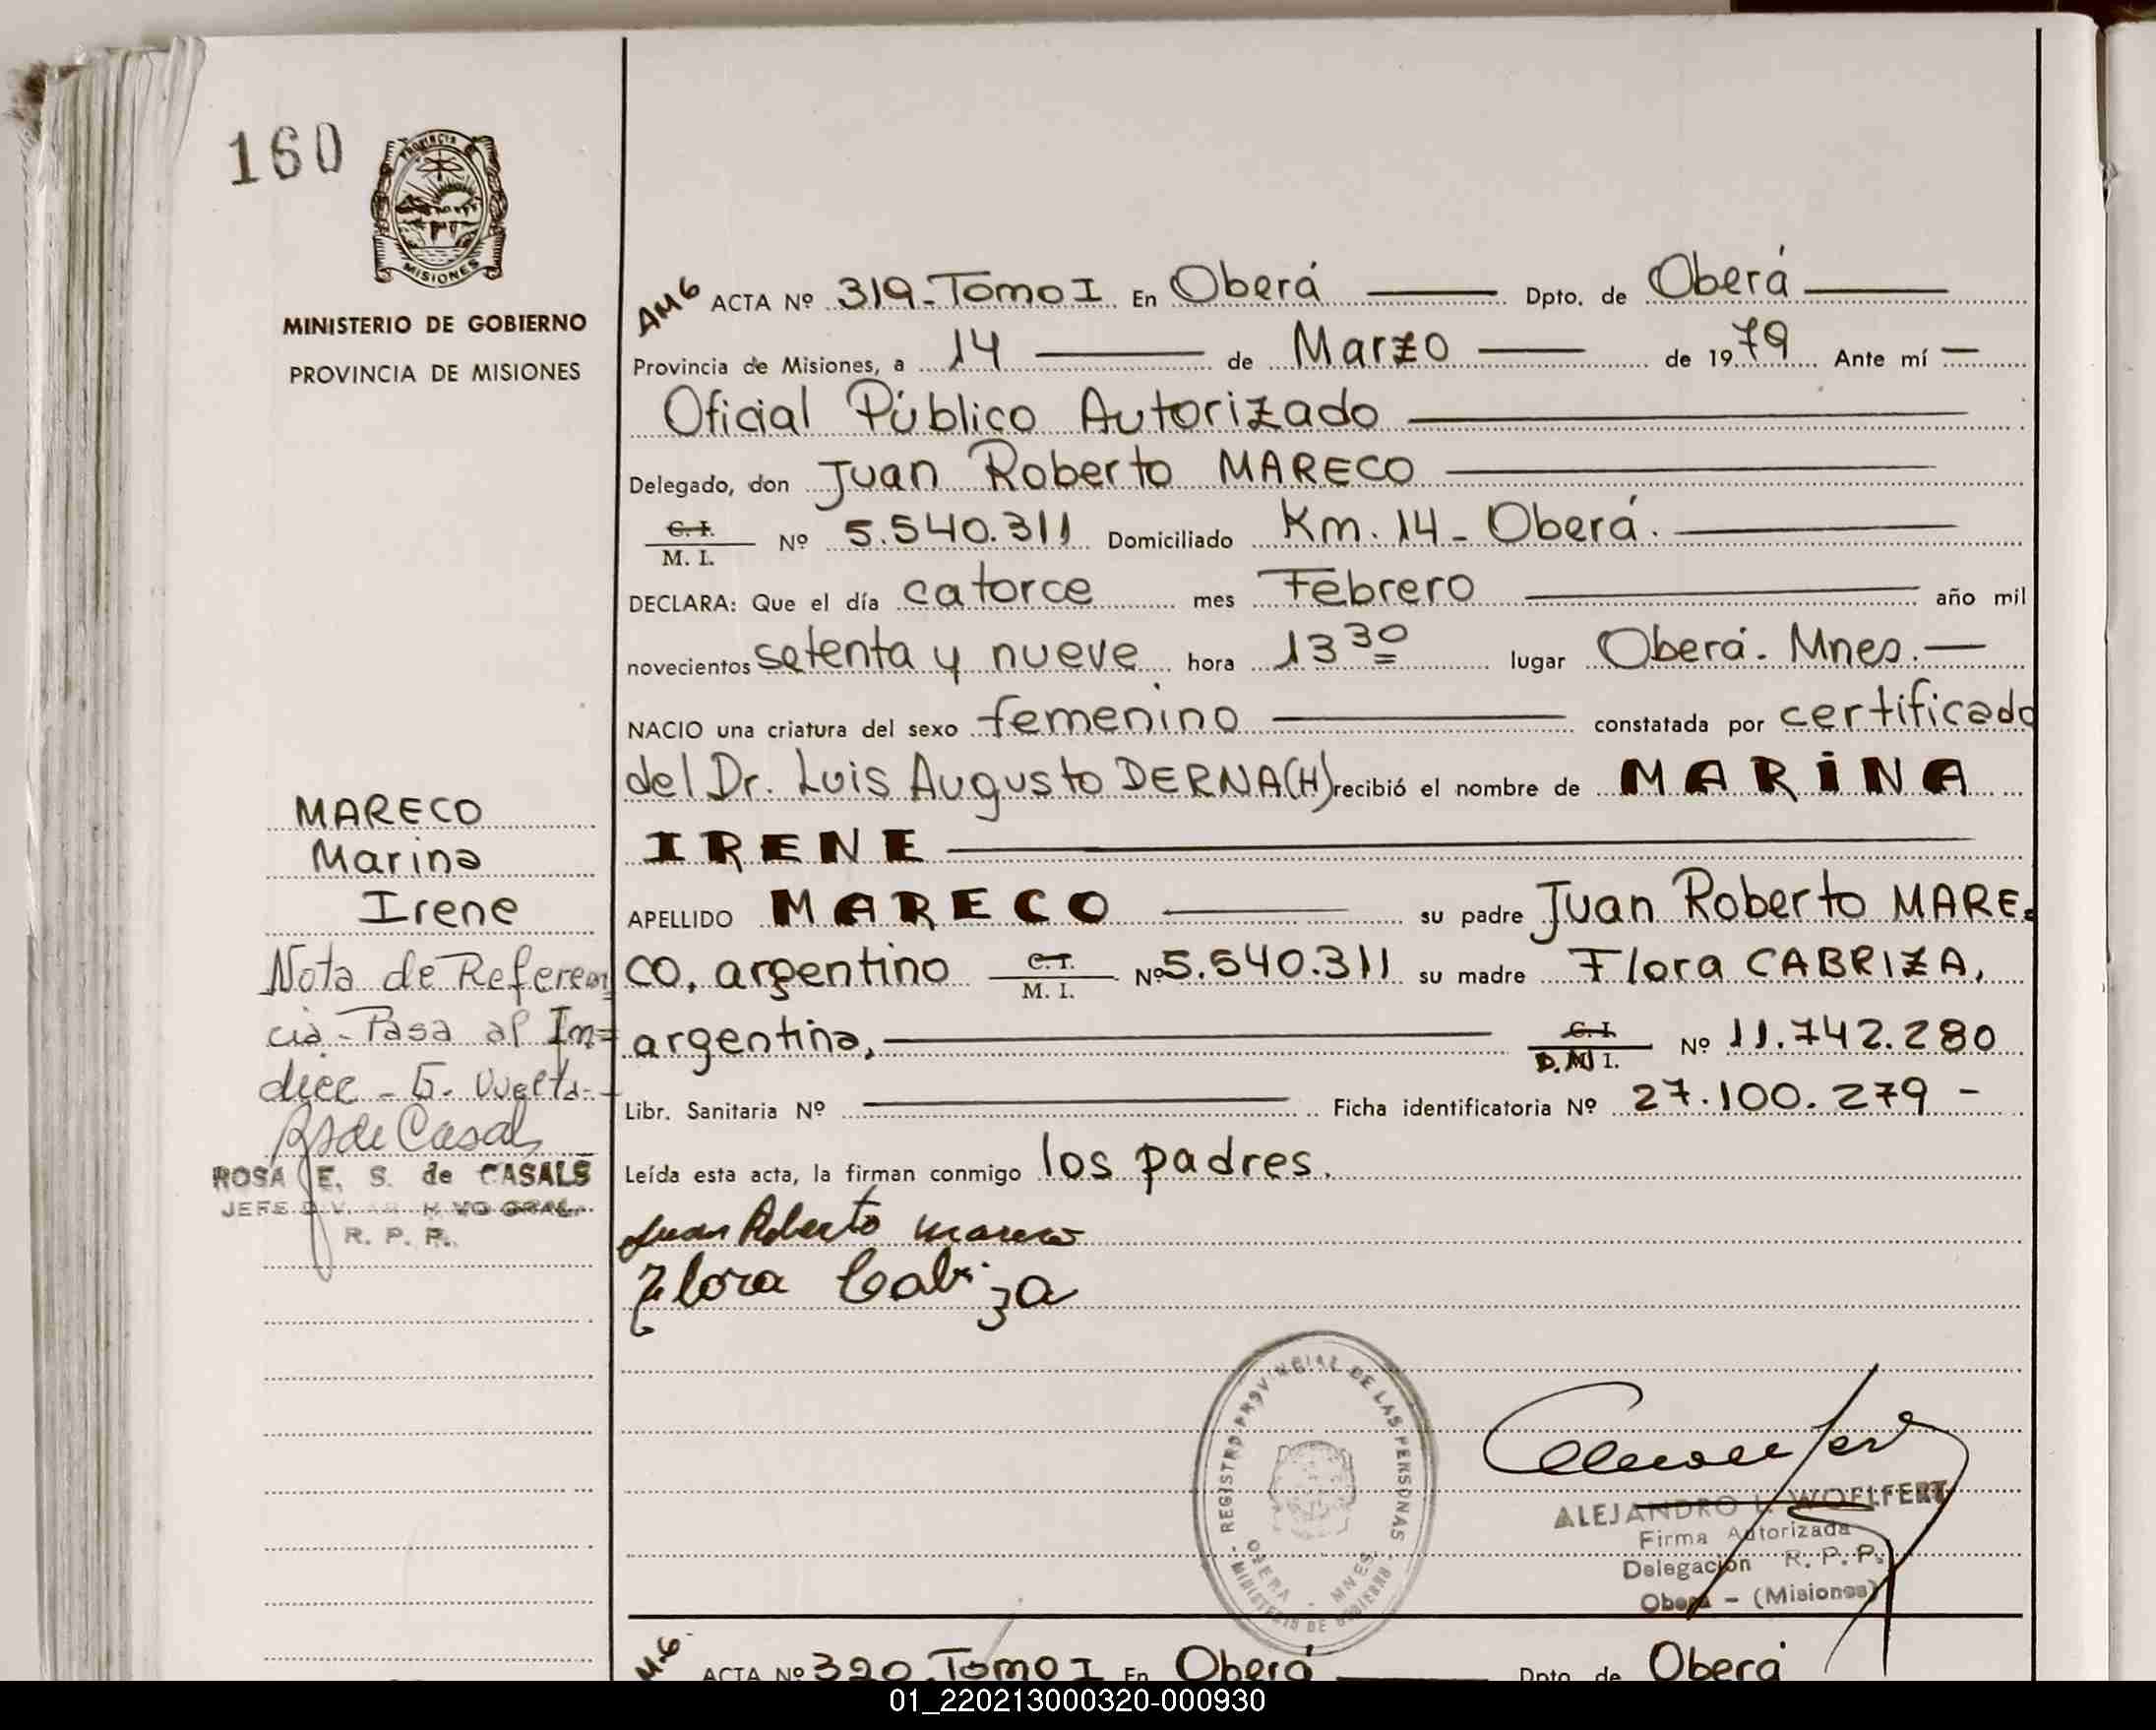 160
PROVINCIA DE
MISIONES
MINISTERIO DE GOBIERNO
PROVINCIA DE MISIONES
MARECO
Marina
Irene
Nota de Referen
cia - Pasa al In=
dice - G. Vuelta.-
RSdeCasals
ROSA E. S. de CASALS
JEFE DIV. ARCHIVO GRAL.
R. P. P.
AM6 ACTA Nº 319-Tomo I En Oberá Dpto. de Oberá
Provincia de Misiones, a 14 de Marzo de 1979 Ante mí
Oficial Público Autorizado
Delegado, don Juan Roberto MARECO
C. I. / M. I. Nº 5.540.311 Domiciliado Km. 14 - Oberá.
DECLARA: Que el día catorce mes Febrero año mil
novecientos setenta y nueve hora 13 30 lugar Oberá. Mnes.
NACIO una criatura del sexo femenino constatada por certificado
del Dr. Luis Augusto DERNA(H) recibió el nombre de MARINA
IRENE
APELLIDO MARECO su padre Juan Roberto MARE-
CO, argentino C. I. / M. I. Nº 5.540.311 su madre Flora CABRIZA,
argentina, C. I. / D.N.I. Nº 11.742.280
Libr. Sanitaria Nº Ficha identificatoria Nº 27.100.279 -
Leída esta acta, la firman conmigo los padres.
Juan Roberto Mareco
Flora Cabriza
- REGISTRO PROVINCIAL DE LAS PERSONAS -
OBERA - MNES.
MINISTERIO DE GOBIERNO
ALEJANDRO L. WOELFERT
Firma Autorizada
Delegación R. P. P.
Oberá - (Misiones)
M-6 ACTA Nº 320 Tomo I En Oberá Dpto. de Oberá
01_220213000320-000930